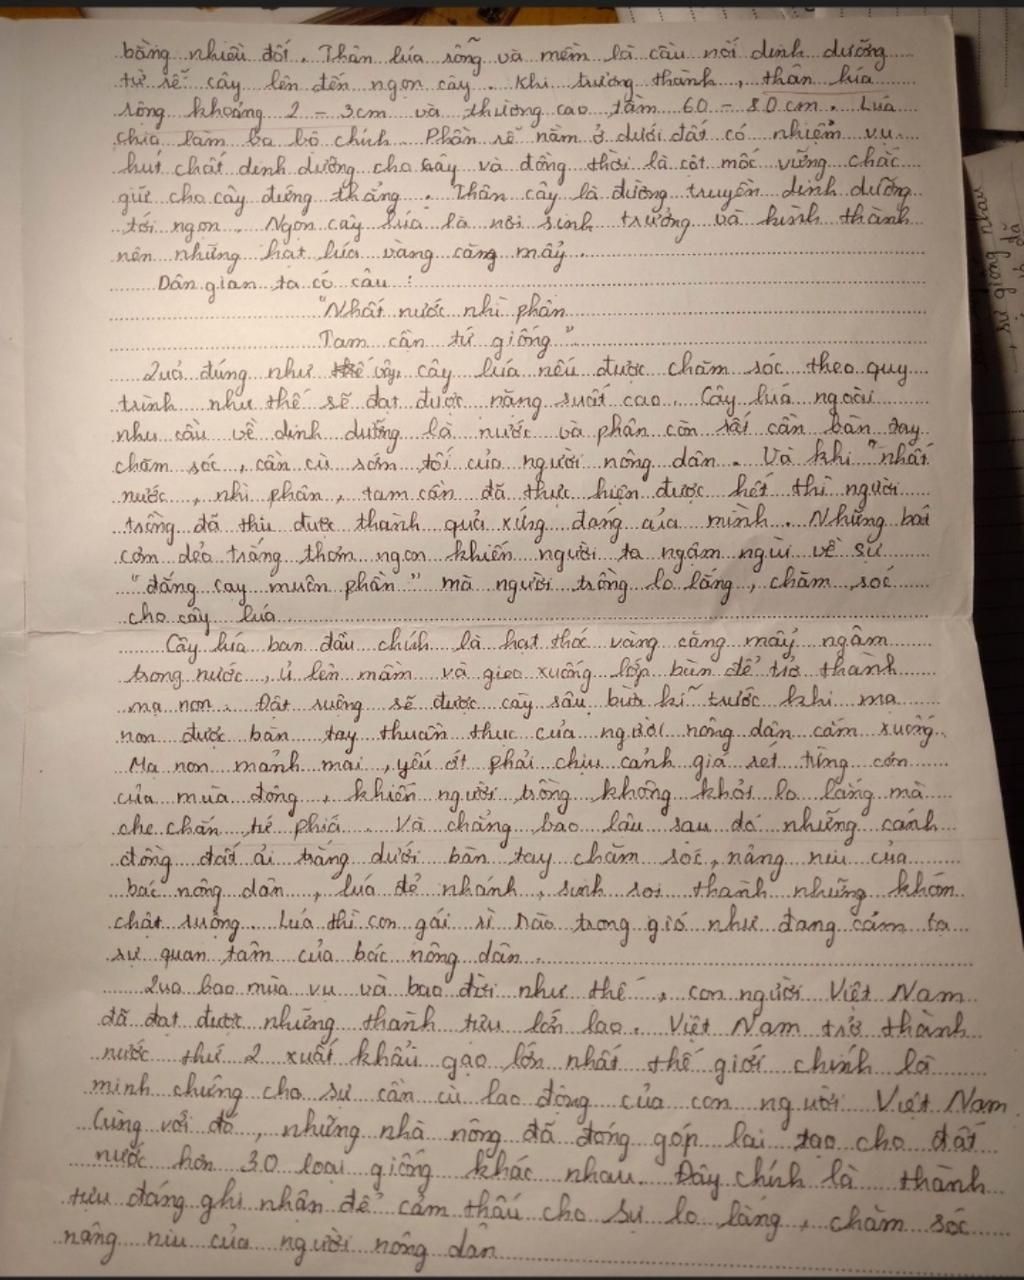 bằng nhiều đốt. Thân lúa rỗng và mềm là cầu nối dinh dưỡng
từ rễ cây lên đến ngọn cây. Khi trưởng thành, thân lúa
rộng khoảng 2 - 3cm và thường cao tầm 60 - 80cm. Lúa
chia làm ba bộ chính. Phần rễ nằm ở dưới đất có nhiệm vụ
hút chất dinh dưỡng cho cây và đồng thời là cột mốc vững chắc
giữ cho cây đứng thẳng. Thân cây là đường truyền dinh dưỡng
tới ngọn. Ngọn cây lúa là nơi sinh trưởng và hình thành
nên những hạt lúa vàng căng mẩy.
Dân gian ta có câu:
"Nhất nước nhì phân
Tam cần tứ giống"
Quả đúng như vậy, cây lúa nếu được chăm sóc theo quy
trình như thế sẽ đạt được năng suất cao. Cây lúa ngoài
nhu cầu về dinh dưỡng là nước và phân còn rất cần bàn tay
chăm sóc, cần cù sớm tối của người nông dân. Và khi "nhất
nước, nhì phân, tam cần đã thực hiện được hết thì người
trồng đã thu được thành quả xứng đáng của mình. Những bát
cơm dẻo trắng thơm ngon khiến người ta ngậm ngùi về sự
"đắng cay muôn phần" mà người trồng lo lắng, chăm sóc
cho cây lúa
Cây lúa ban đầu chính là hạt thóc vàng căng mẩy ngâm
trong nước, ủ lên mầm và gieo xuống lớp bùn để trở thành
mạ non. Đất ruộng sẽ được cày sâu bừa kĩ trước khi mạ
non được bàn tay thuần thục của người nông dân cắm xuống.
Mạ non mảnh mai, yếu ớt phải chịu cảnh giá rét từng cơn
của mùa đông, khiến người trồng không khỏi lo lắng mà
che chắn tứ phía. Và chẳng bao lâu sau đó những cánh
đồng đất ải trắng dưới bàn tay chăm sóc, nâng niu của
bác nông dân, lúa đẻ nhánh, sinh sôi thành những khóm
chật ruộng. Lúa thì con gái rì rào trong gió như đang cảm tạ
sự quan tâm của bác nông dân.
Qua bao mùa vụ và bao đời như thế, con người Việt Nam
đã đạt được những thành tựu lớn lao. Việt Nam trở thành
nước thứ 2 xuất khẩu gạo lớn nhất thế giới chính là
minh chứng cho sự cần cù lao động của con người Việt Nam.
Cùng với đó, những nhà nông đã đóng góp lai tạo cho đất
nước hơn 30 loại giống khác nhau. Đây chính là thành
tựu đáng ghi nhận để cảm thấu cho sự lo lắng, chăm sóc
nâng niu của người nông dân